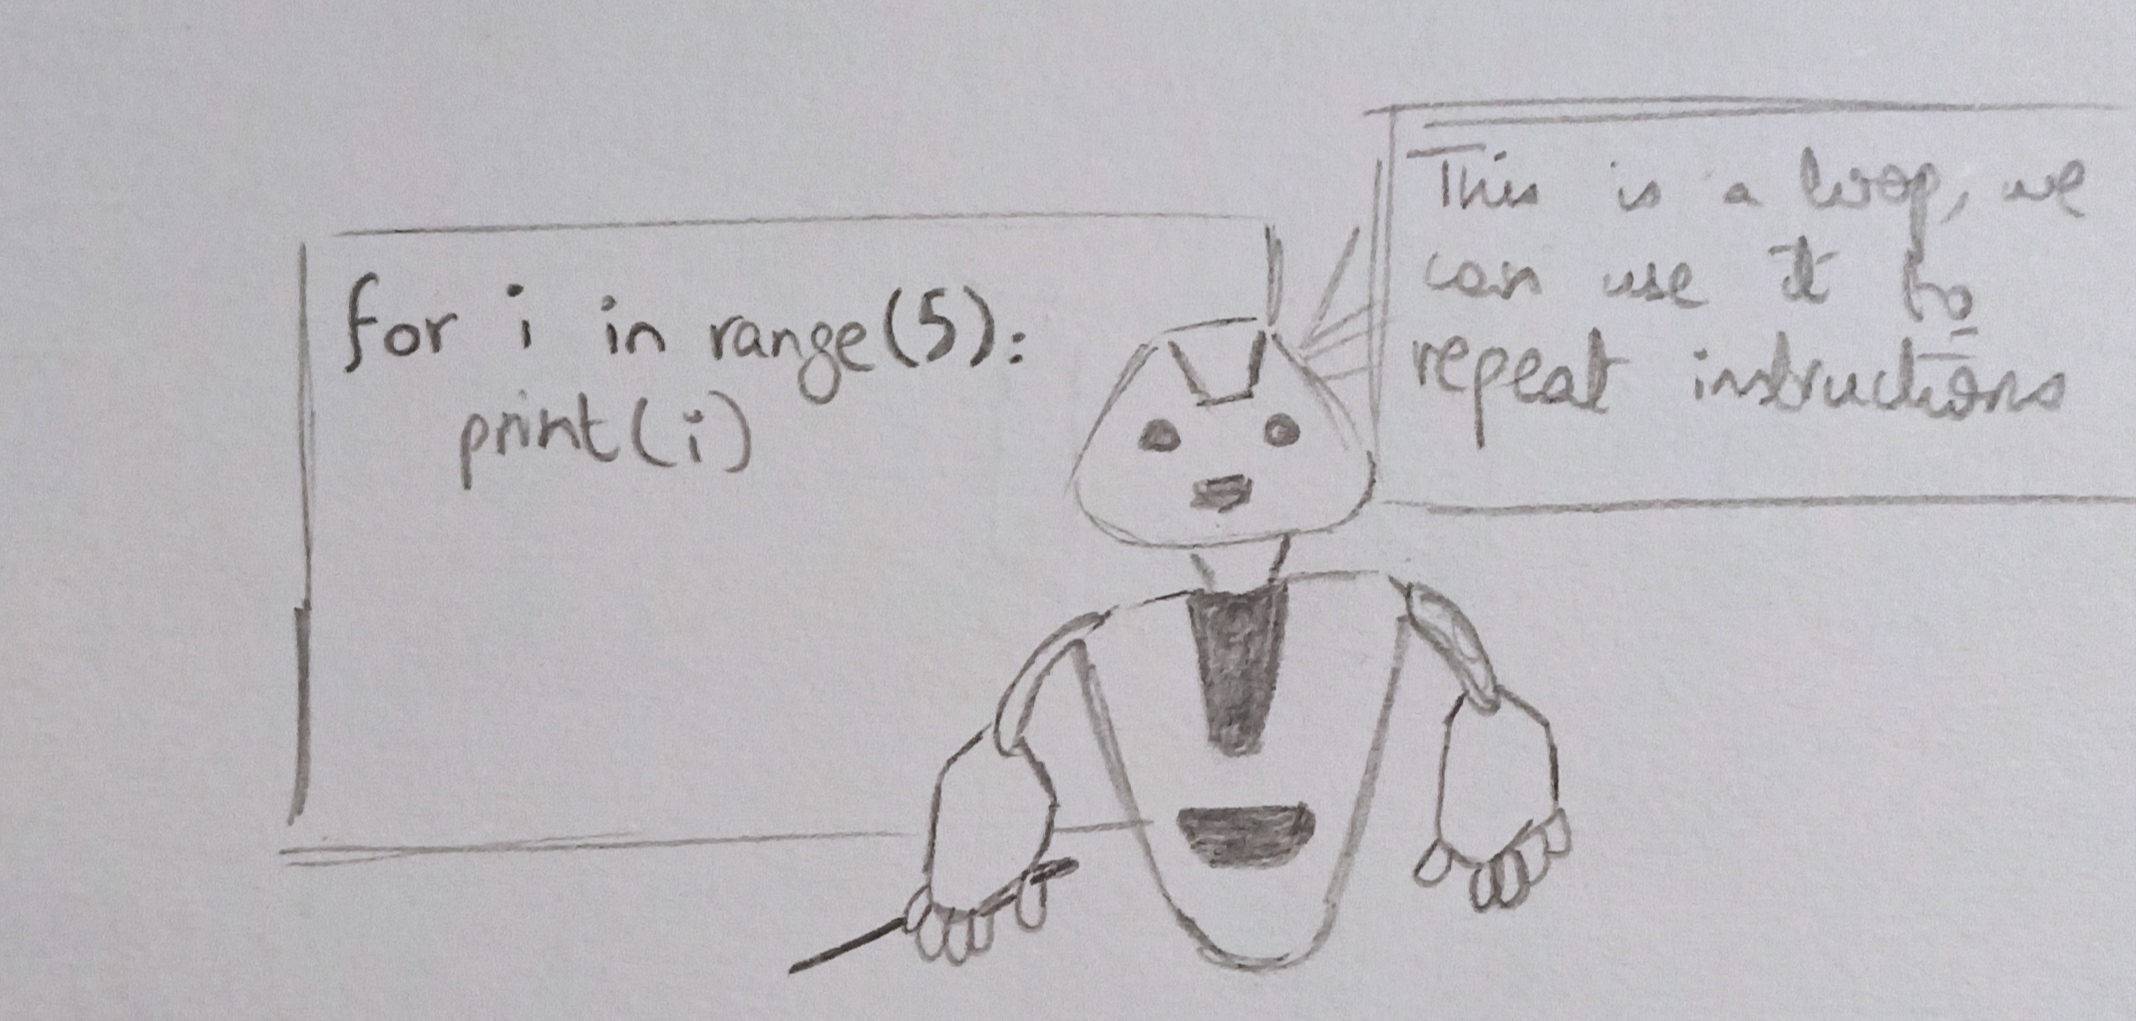 for i in range(5):
    print(i)
This is a loop, we
can use it to
repeat instructions